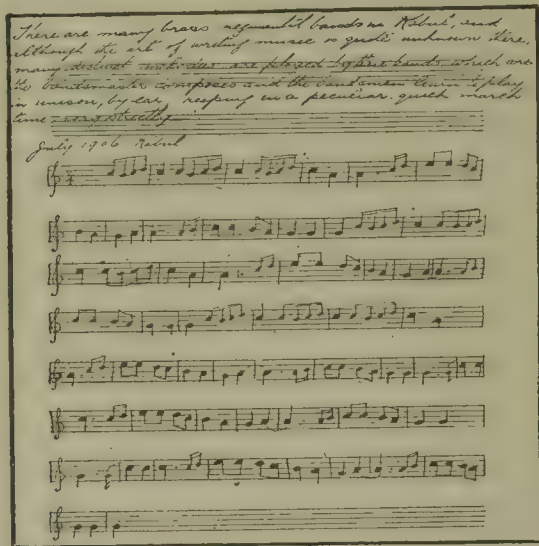 There are many brass regimental bands in Kabul, and
although the art of writing music is quite unknown there,
many distinct melodies are played by these bands, which are
the bandmaster composes and the bandsmen learn to play
in unison, by ear, keeping in a peculiar quick march
time very strictly
July 1906 Kabul